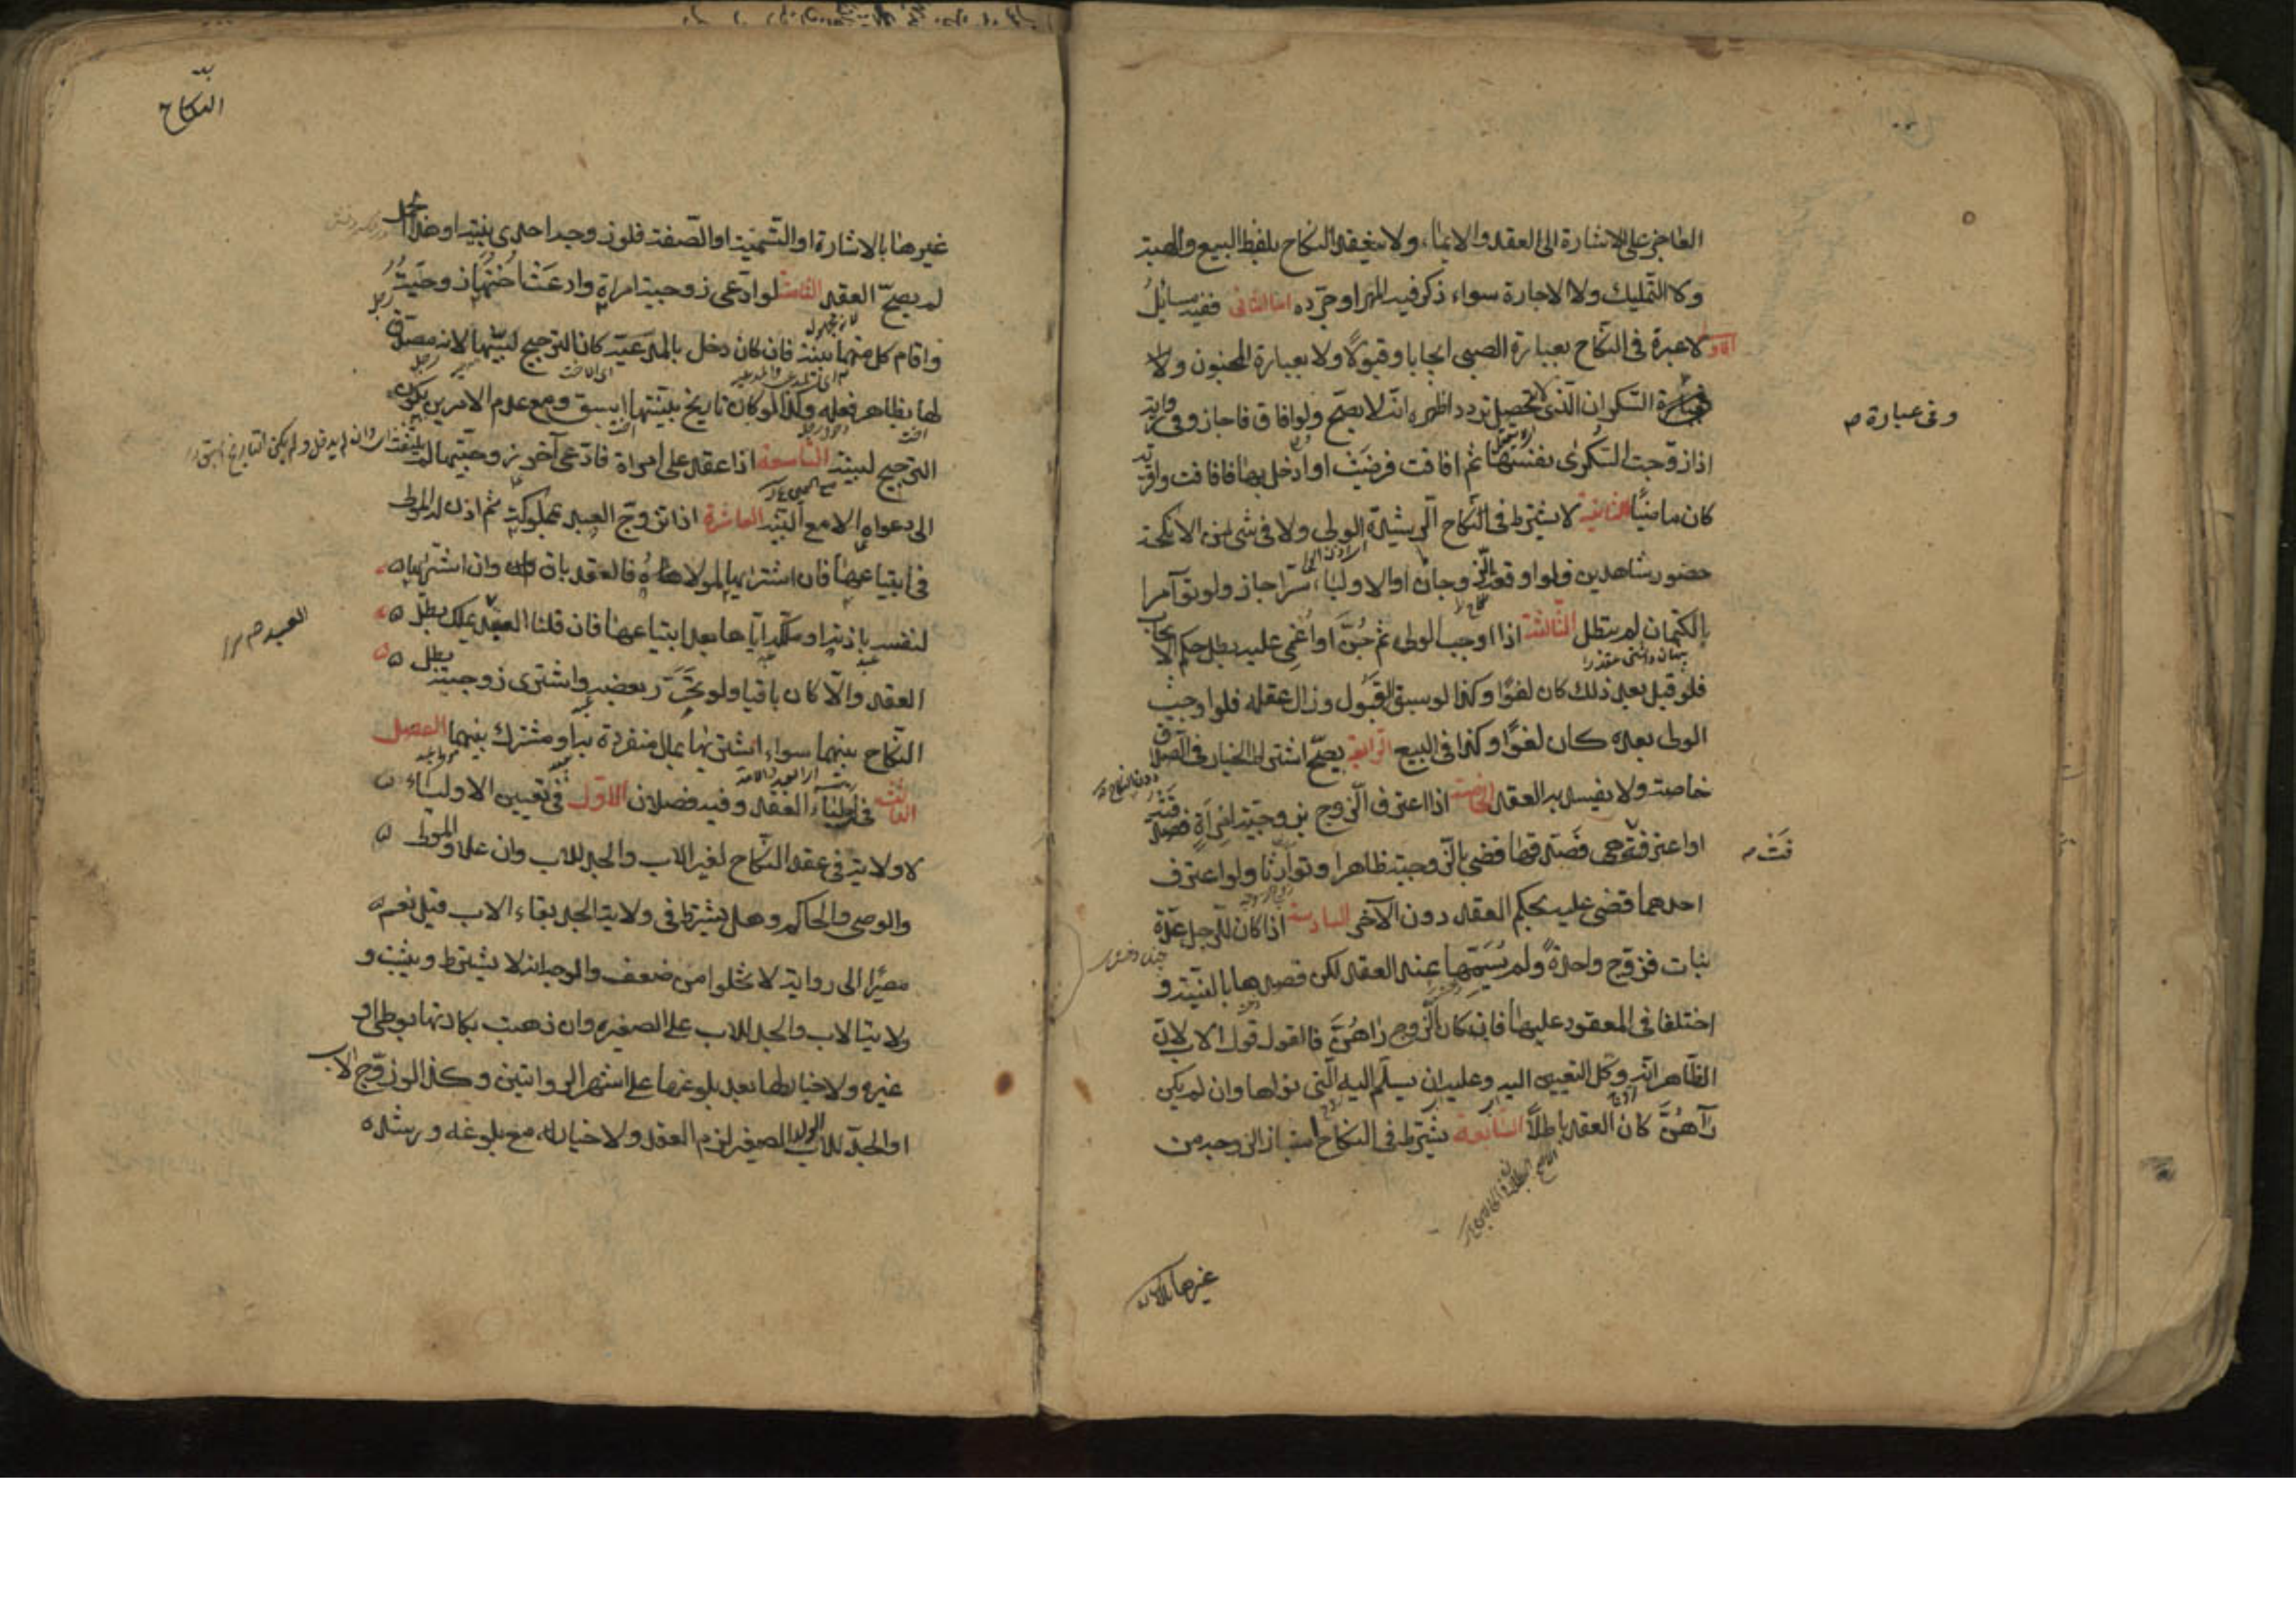 العاجز على الاشارة الى العقد والايماء ولا ينعقد النكاح بلفظ البيع والهبة
ولا التمليك ولا الاجارة سواء ذكر فيه المهر او جرده اما الثانى ففيه مسايل
الاولى لا عبرة فى النكاح بعبارة الصبى ايجابا وقبولا ولا بعبارة المجنون ولا
السكران الذى لا يحصل تردد اظهره انه لا يصح ولو افاق فاجاز وفى رواية
وفى عبارة
اذا زوجت السكرى نفسها ثم افاقت فرضيت او دخل بها فافاقت واقرته
كان ماضيا الثانية لا يشترط فى النكاح الرشيدة الولى ولا فى شئ من الانكحة
حضور شاهدين فلو اوقعه الزوجان او الاولياء سرا جاز ولو توآمرا
بالكتمان لم يبطل الثالثة اذا اوجب الولى ثم جن او اغمى عليه بطل حكم الايجاب
فلو قبل بعد ذلك كان لغوا وكذا لو سبق القبول وزال عقله فلو اوجب
الولى بعده كان لغوا وكذا فى البيع الرابعة يصح اشتراط الخيار فى الصداق
خاصة ولا يفسد به العقد الخامسة اذا اعترف الزوج بزوجية امرأة فصدقته
او اعترفت هى فصدقها قضى بالزوجية ظاهرا وتوارثا ولو اعترف
احدهما قضى عليه بحكم العقد دون الآخر السادسة اذا كان للرجل عدة
بنات فزوج واحدة ولم يسمها عند العقد لكن قصدها بالنية و
اختلفا فى المعقود عليها فان كان الزوج راهن فالقول قول الاب لان
الظاهر انه وكل التعيين اليه وعليه ان يسلم اليه التى نواها وان لم يكن
رآهن كان العقد باطلا السابعة يشترط فى النكاح امتياز الزوجة من
غيرها بالاشارة
النكاح
غيرها بالاشارة او التسمية او الصفة فلو زوجه احدى بنتيه او هذا الحمل
لم يصح العقد الثامنة لو ادعى زوجية امراة وادعت اختها زوجيته
واقام كل منهما بينة فان كان دخل بالمدعية كان الترجيح لبينتها لانه مصدق
لها بظاهر فعله وكذا لو كان تاريخ بينتها اسبق ومع عدم الامرين يكون
الترجيح لبينته التاسعة اذا عقد على امراة فادعى آخر زوجيتها لم يلتفت
الى دعواه الا مع البينة العاشرة اذا تزوج العبد بمملوكة ثم اذن له المولى
فى ابتياعها فان اشتراها لمولاه فالعقد باق وان اشتراها
لنفسه باذنه او ملكه اياها بعد ابتياعها فان قلنا العبد يملك بطل
العقد والا كان باقيا ولو تحرر بعضه واشترى زوجته بطل
النكاح بينهما سواء اشتراها بمال منفرد به او مشترك بينهما الفصل
الثالث فى اولياء العقد وفيه فصلان الاول فى تعيين الاولياء
لا ولاية فى عقد النكاح لغير الاب والجد للاب وان علا والمولى
والوصى والحاكم وهل يشترط فى ولاية الجد بقاء الاب قيل نعم
مصيرا الى رواية لا تخلوا من ضعف والوجه انه لا يشترط ويثبت و
ولاية الاب والجد للاب على الصغيرة وان ذهبت بكارتها بوطى او
غيره ولا خيار لها بعد بلوغها على اشهر الروايتين وكذا لو زوج الاب
او الجد للاب الولد الصغير لزم العقد ولا خيار له مع بلوغه ورشده